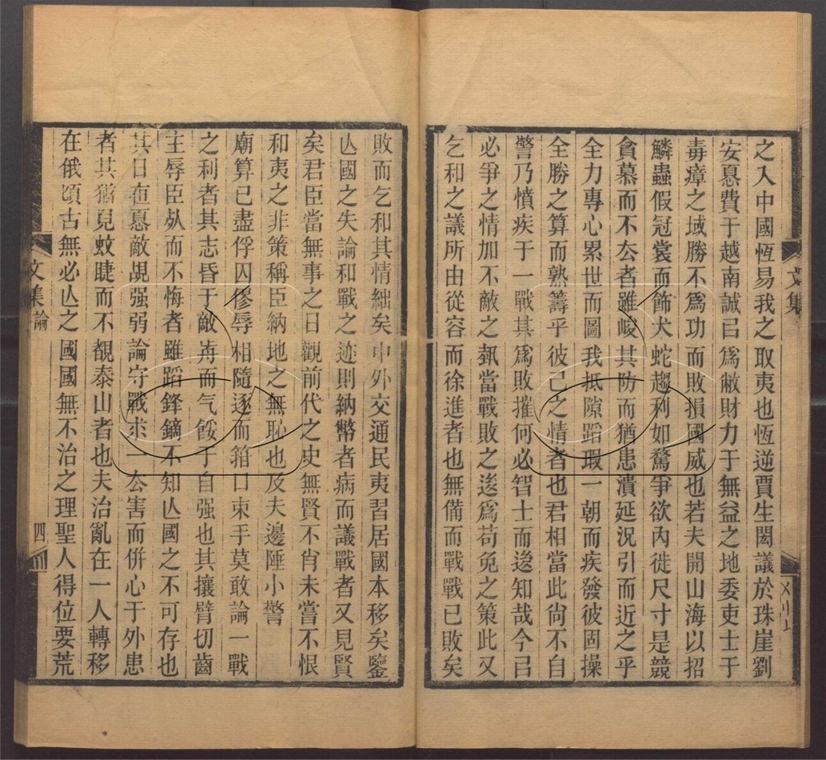 之入中國恆易我之取夷也恆逆賈生閎議於珠崖劉
安惎費于越南誠㠯爲敝財力于無益之地委吏士于
毒瘴之域勝不爲功而敗損國威也若夫開山海以招
鱗蟲假冠裳而飾犬蛇趨利如騖爭欲內徙尺寸是競
貪慕而不厺者雖峻其防而猶患潰延況引而近之乎
全力專心累世而圖我抵隙蹈瑕一朝而疾發彼固操
全勝之算而熟籌乎彼己之情者也君相當此尙不自
警乃憤疾于一戰其爲敗摧何必智士而逡知哉今㠯
必爭之情加不敵之埶當戰敗之後爲苟免之策此又
乞和之議所由從容而徐進者也無備而戰戰已敗矣
文集
敗而乞和其情絀矣中外交通民夷習居國本移矣鑒
亾國之失論和戰之迹則納幣者病而議戰者又見賢
矣君臣當無事之日觀前代之史無賢不肖未嘗不恨
和夷之非策稱臣納地之無恥也及夫邊陲小警
廟算已盡俘囚僇辱相隨逐而箝口束手莫敢論一戰
之利者其志昏于敵耑而气餒于自强也其攘臂切齒
主辱臣𣦸而不悔者雖蹈鋒鏑不知亾國之不可存也
其日夜惎敵覘强弱論守戰求一厺害而併心于外患
者其猶見蚊睫而不覩泰山者也夫治亂在一人轉移
在俄頃古無必亾之國國無不治之理聖人得位要荒
文集論
四